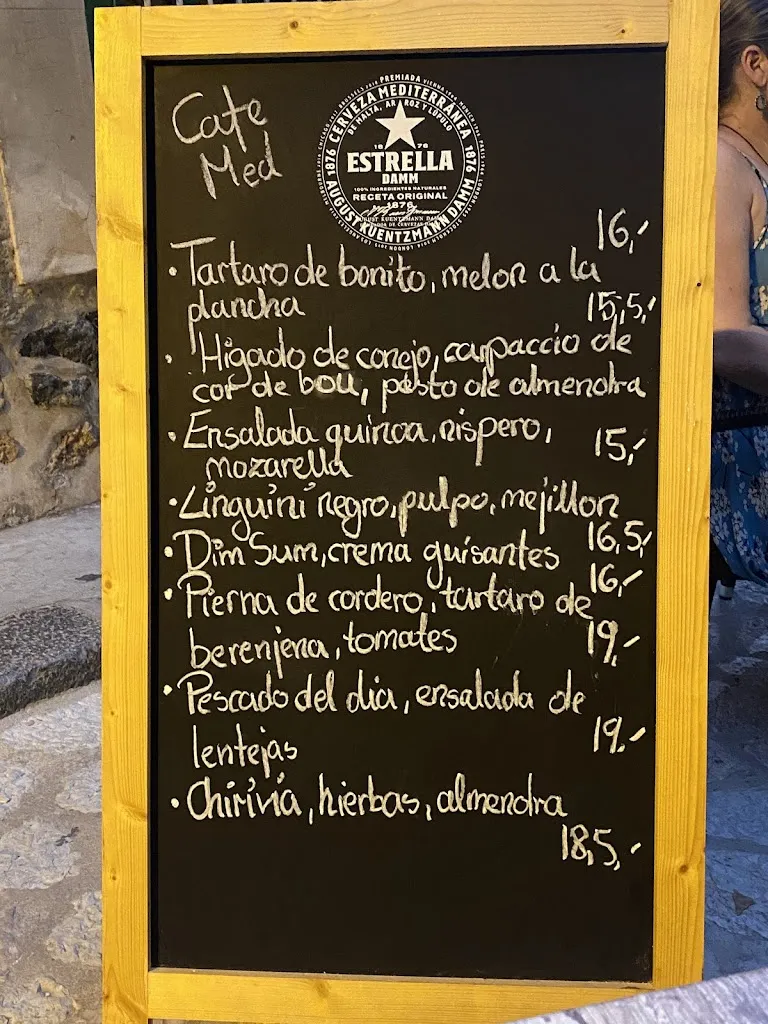 Cafe
Med
PREMIADA
CERVEZA MEDITERRÁNEA
DE MALTA, ARROZ Y LÚPULO
1876
1876
18 76
ESTRELLA
DAMM
100% INGREDIENTES NATURALES
RECETA ORIGINAL
1876
AUGUST KUENTZMANN DAMM
16,-
• Tartaro de bonito, melon a la
plancha
15,5,-
• Higado de conejo, carpaccio de
cor de bou, pesto de almendra
• Ensalada quinoa, nispero,
15,-
mozarella
• Linguini negro, pulpo, mejillon
16,5,-
• Dim Sum, crema guisantes
16,-
• Pierna de cordero, tartaro de
berenjena, tomates
19,-
• Pescado del dia, ensalada de
19,-
lentejas
• Chirivia, hierbas, almendra
18,5,-